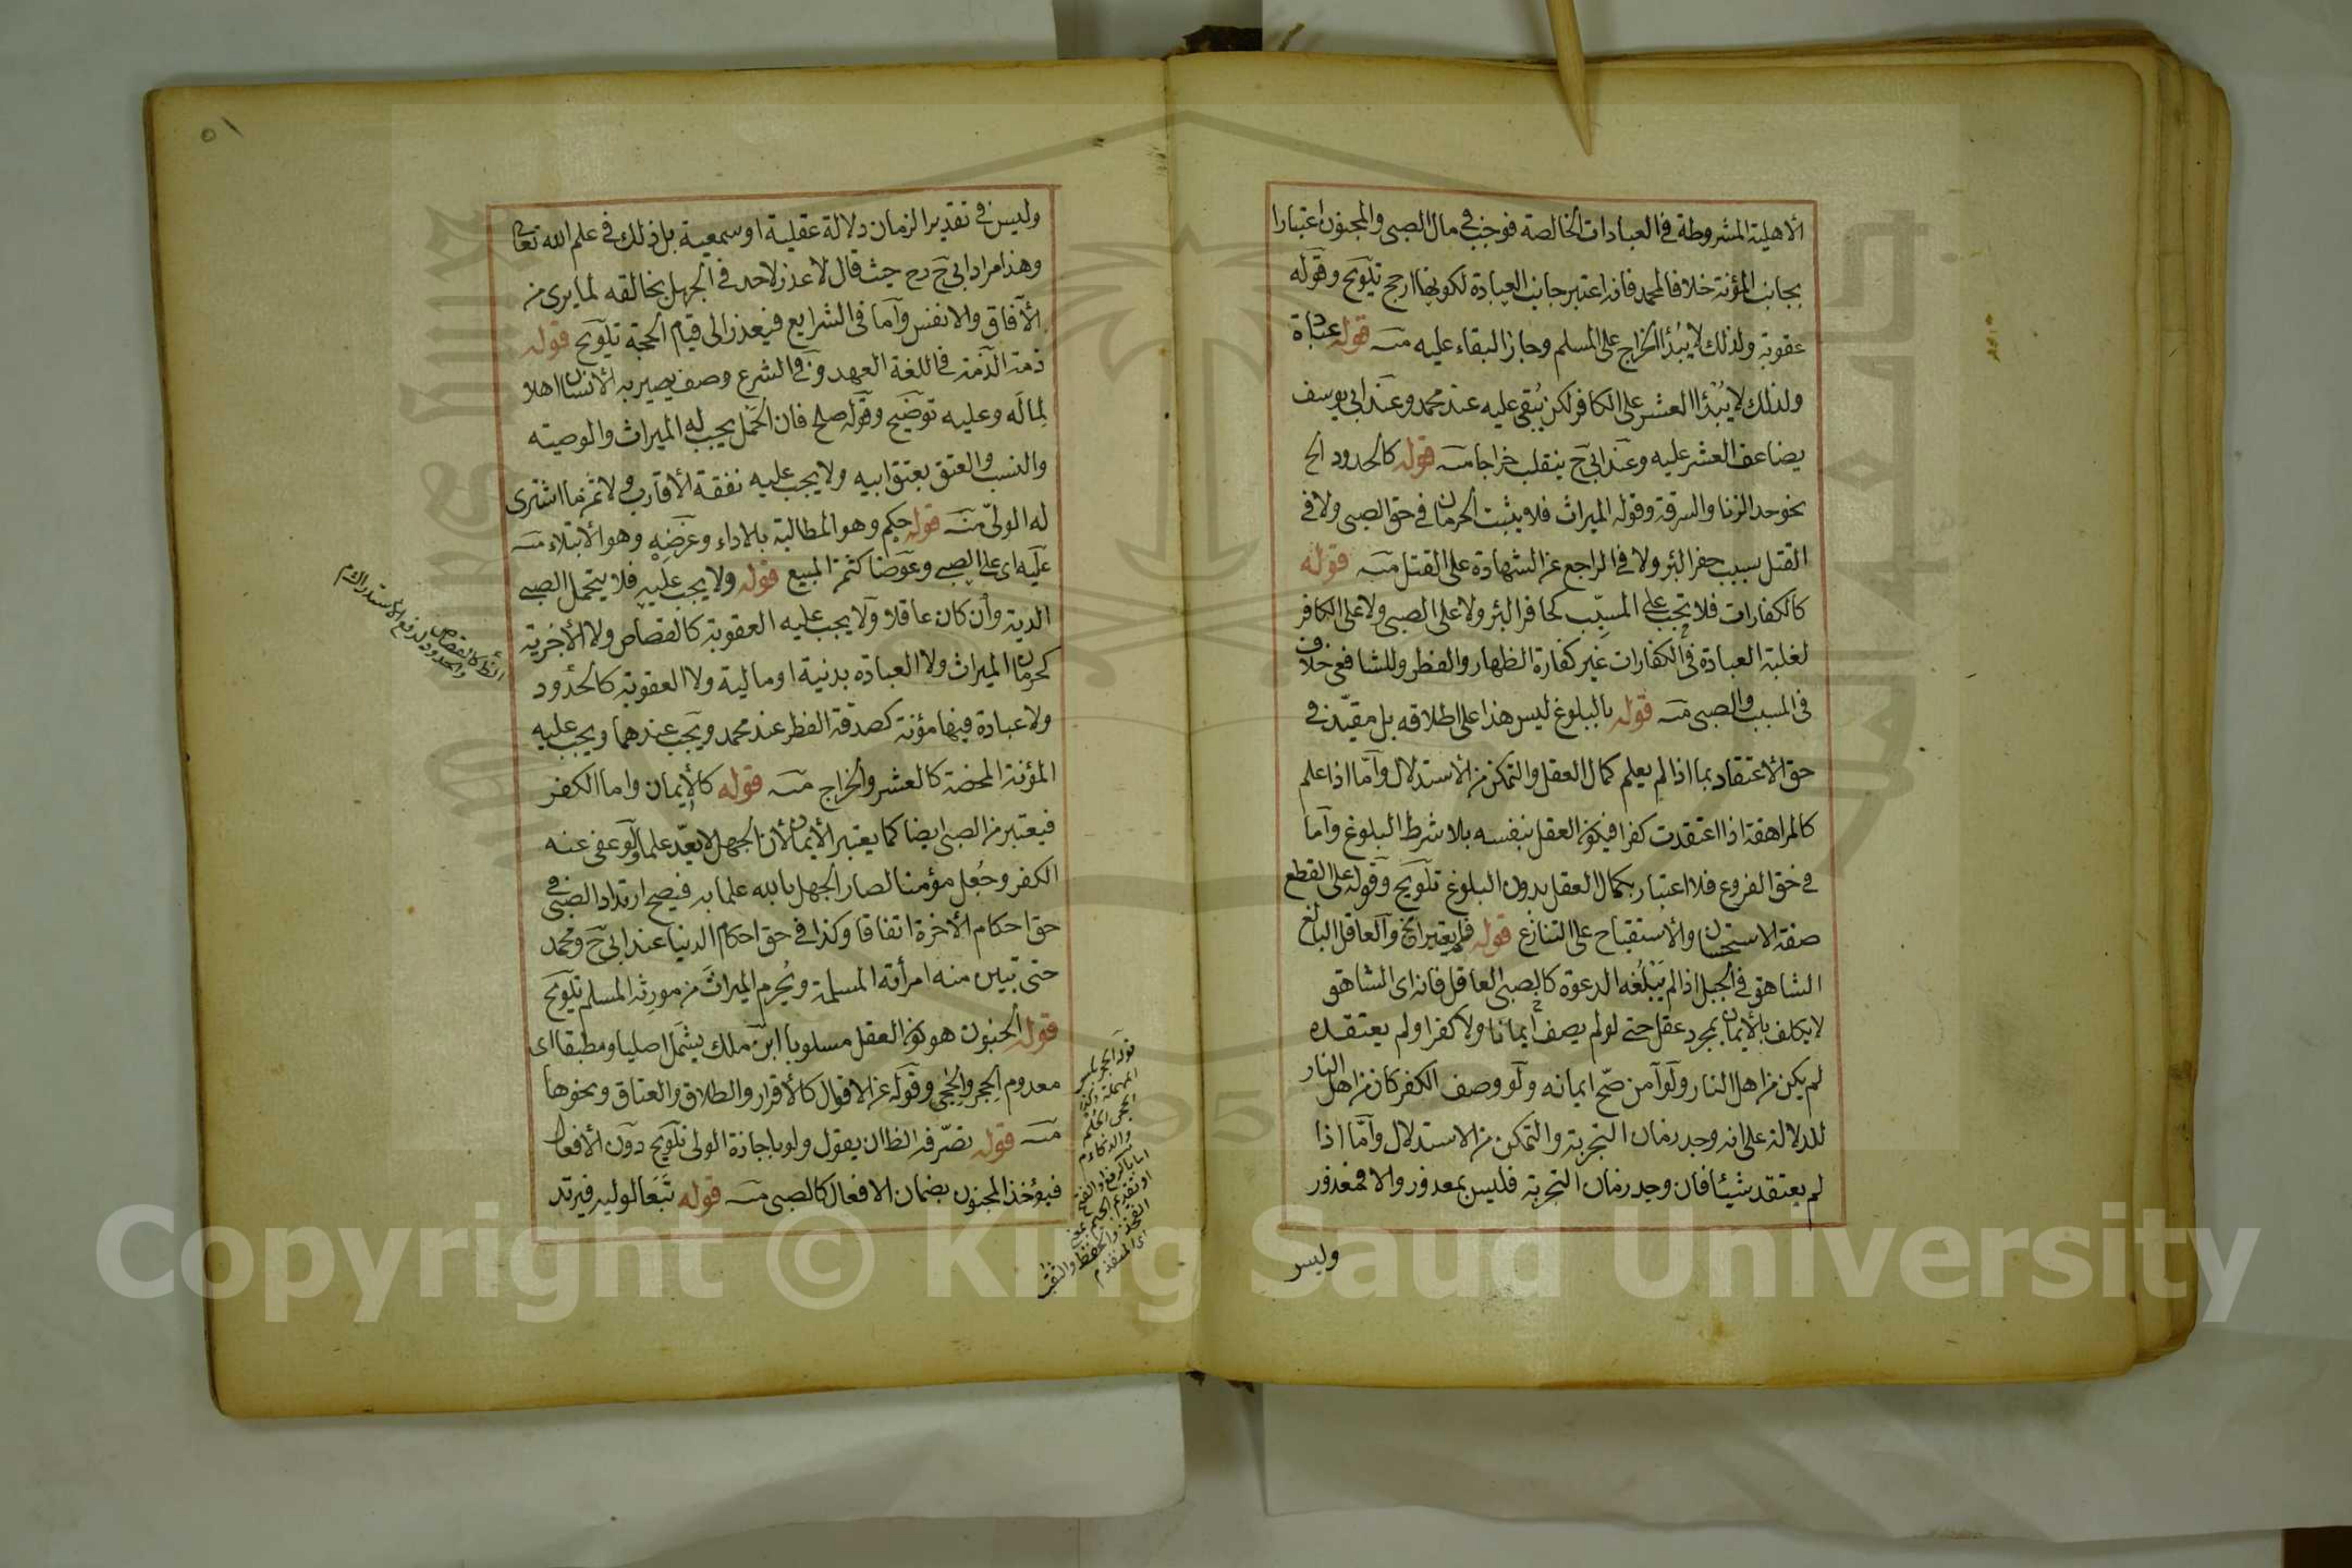 الاهلية المشروطة في العبادات الخالصة فوجب في مال الصبي والمجنون اعتبارا
بجانب المؤنة خلافا لمحمد فانه اعتبر جانب العبادة لكونها ارجح تلويح وقوله
عقوبة ولذلك لا يبدأ الخراج على المسلم وجاز البقاء عليه منه قوله عبادة
ولذلك لا يبتدأ العشر على الكافر لكن يبقى عليه عند محمد وعند ابى يوسف
يضاعف العشر عليه وعند ابى ح ينقلب خراجا منه قوله كالحدود الخ
نحو حد الزنا والسرقة وقوله الميراث فلا يثبت الحرمان في حق الصبى ولا في
القتل بسبب حفر البئر ولا في الراجع عن الشهادة على القتل منه قوله
كالكفارات فلا تجب على المسبّب كحافر البئر ولا على الصبى ولا على الكافر
لغلبة العبادة في الكفارات غير كفارة الظهار والفطر وللشافعى خلاف
في المسبب والصبى منه قوله بالبلوغ ليس هذا على اطلاقه بل مقيّد في
حق الاعتقاد بما اذا لم يعلم كمال العقل والتمكن من الاستدلال وأمّا اذا علم
كالمراهقة اذا اعتقدت كفرا فيكون العقل بنفسه بلا شرط البلوغ وأما
في حق الفروع فلا اعتبار بكمال العقل بدون البلوغ تلويح وقوله على القطع
صفة الاستحسان والاستقباح على التنازع قوله فلم يعتبر الخ والعاقل البالغ
الشاهق في الجبل اذا لم يَبْلُغه الدعوة كالصبى العاقل فانه اى الشاهق
لا يكلف بالايمان بمجرد عقل حتى لو لم يصف ايمانا ولا كفرا ولم يعتقده
لم يكن من اهل النار ولو آمن صحّ ايمانه ولو وصف الكفر كان من اهل النار
للدلالة على انه وجد زمان التجربة والتمكن من الاستدلال وأمّا اذا
لم يعتقد شيئا فان وجد زمان التجربة فليس بمعذور والا فمعذور
وليس
٥١
وليس في تقدير الزمان دلالة عقلية او سمعية بل ذلك في علم الله تعالى
وهذا مراد ابى ح رح حيث قال لا عذر لاحد في الجهل بخالقه لما يرى من
الآفاق والانفس وأما في الشرايع فيعذر الى قيام الحجة تلويح قوله
ذمة الذمة في اللغة العهد وفي الشرع وصف يصير به الانسان اهلا
لما له وعليه توضيح وقوله صلح فان الحمل يجب له الميراث والوصية
والنسب والعتق بعتق ابيه ولا يجب عليه نفقة الاقارب ولا ثمن ما اشترى
له الولىّ منه قوله حكم وهو المطالبة بالاداء وغرضه وهو الابتلاء منه
عليه اى على الصبى وعوضا كثمن المبيع قوله ولا يجب عليه فلا يتحمل الصبى
الدية وأن كان عاقلا ولا يجب عليه العقوبة كالقصاص ولا الأجزية
كحرمان الميراث ولا العبادة بدنية او مالية ولا العقوبة كالحدود
ولا عبادة فيها مؤنة كصدقة الفطر عند محمد ويجب عندهما ويجب عليه
المؤنة المحضة كالعشر والخراج منه قوله كالايمان واما الكفر
فيعتبر من الصبى ايضا كما يعتبر الايمان لأن الجهل لا يعدّ علما ولو عفى عنه
الكفر وجُعل مؤمنا لصار الجهل بالله علما به فيصح ارتداد الصبى في
حق احكام الاخرة اتفاقا وكذا في حق احكام الدنيا عند ابى ح ومحمد
حتى تبين منه امرأته المسلمة ويُحرم الميراثَ من مورثه المسلم تلويح
قوله الجنون هو كون العقل مسلوبا ابن ملك يشمل اصليا ومطبقا اى
معدوم الحِجر والحِجى وقوله عن الاقوال كالاقرار والطلاق والعتاق ونحوها
منه قوله تصرّفه الظ ان يقول ولو باجازة الولى تلويح دون الافعال
فيؤخذ المجنون بضمان الافعال كالصبى منه قوله تَبَعا لوليه فيرتد
الظ كالقصاص
والحدود لدفع الاستدراك م